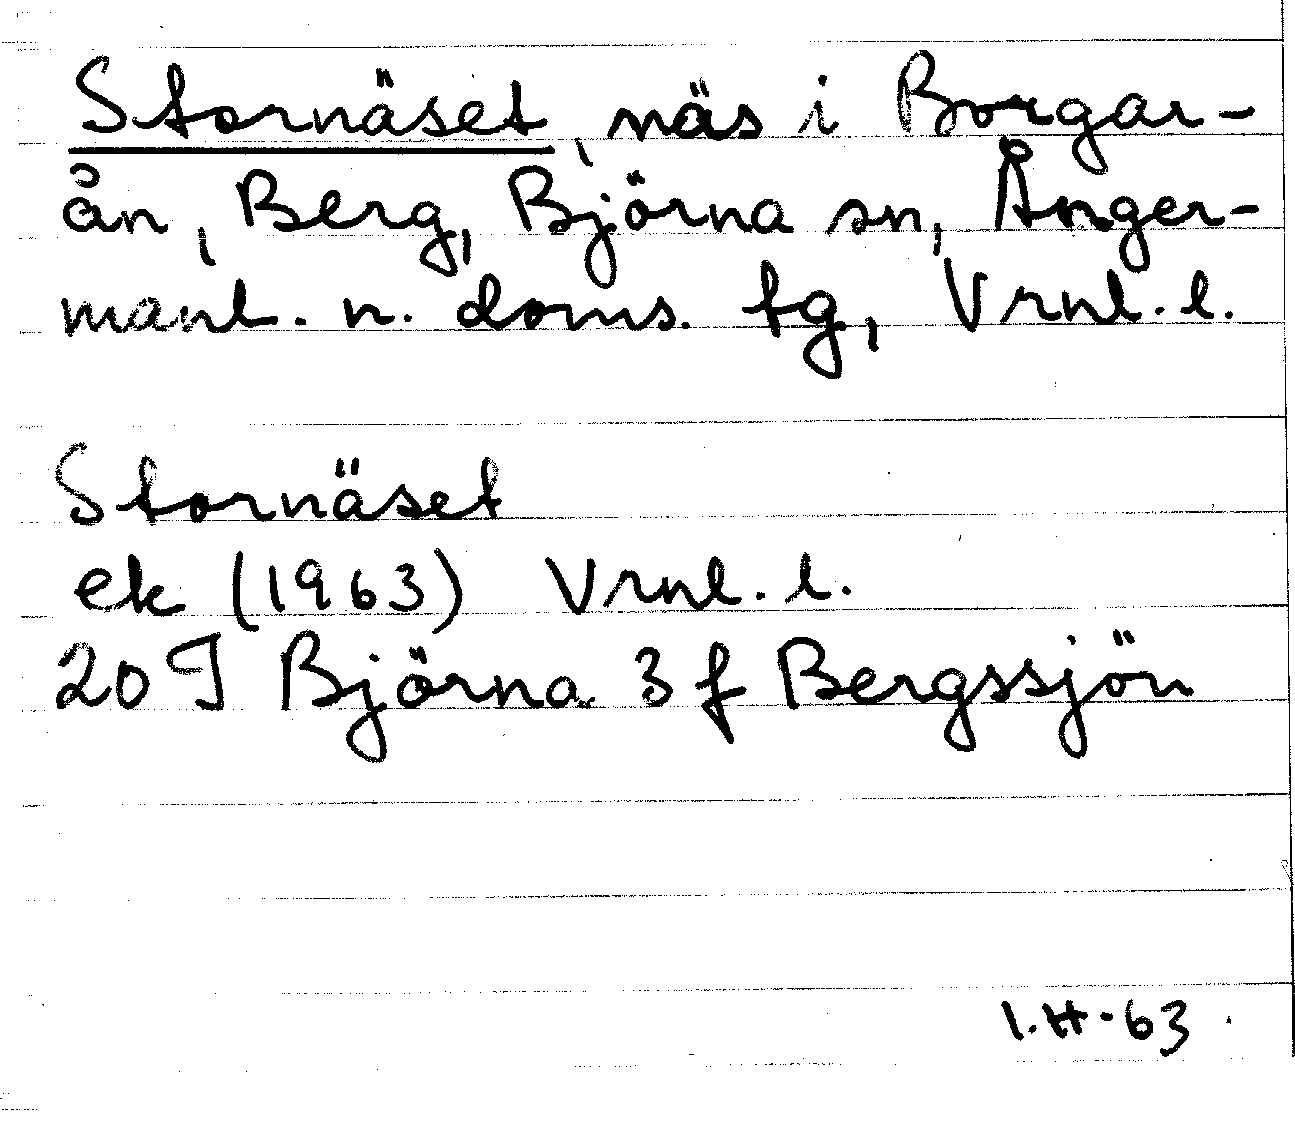 Stornäset, näs i Borgar-
ån, Berg, Björna sn, Ånger-
manl. n. doms. tg, Vrnl. l.
Stornäset
ek (1963) Vrnl. l.
20 I Björna 3 f Bergssjön
I.H-63